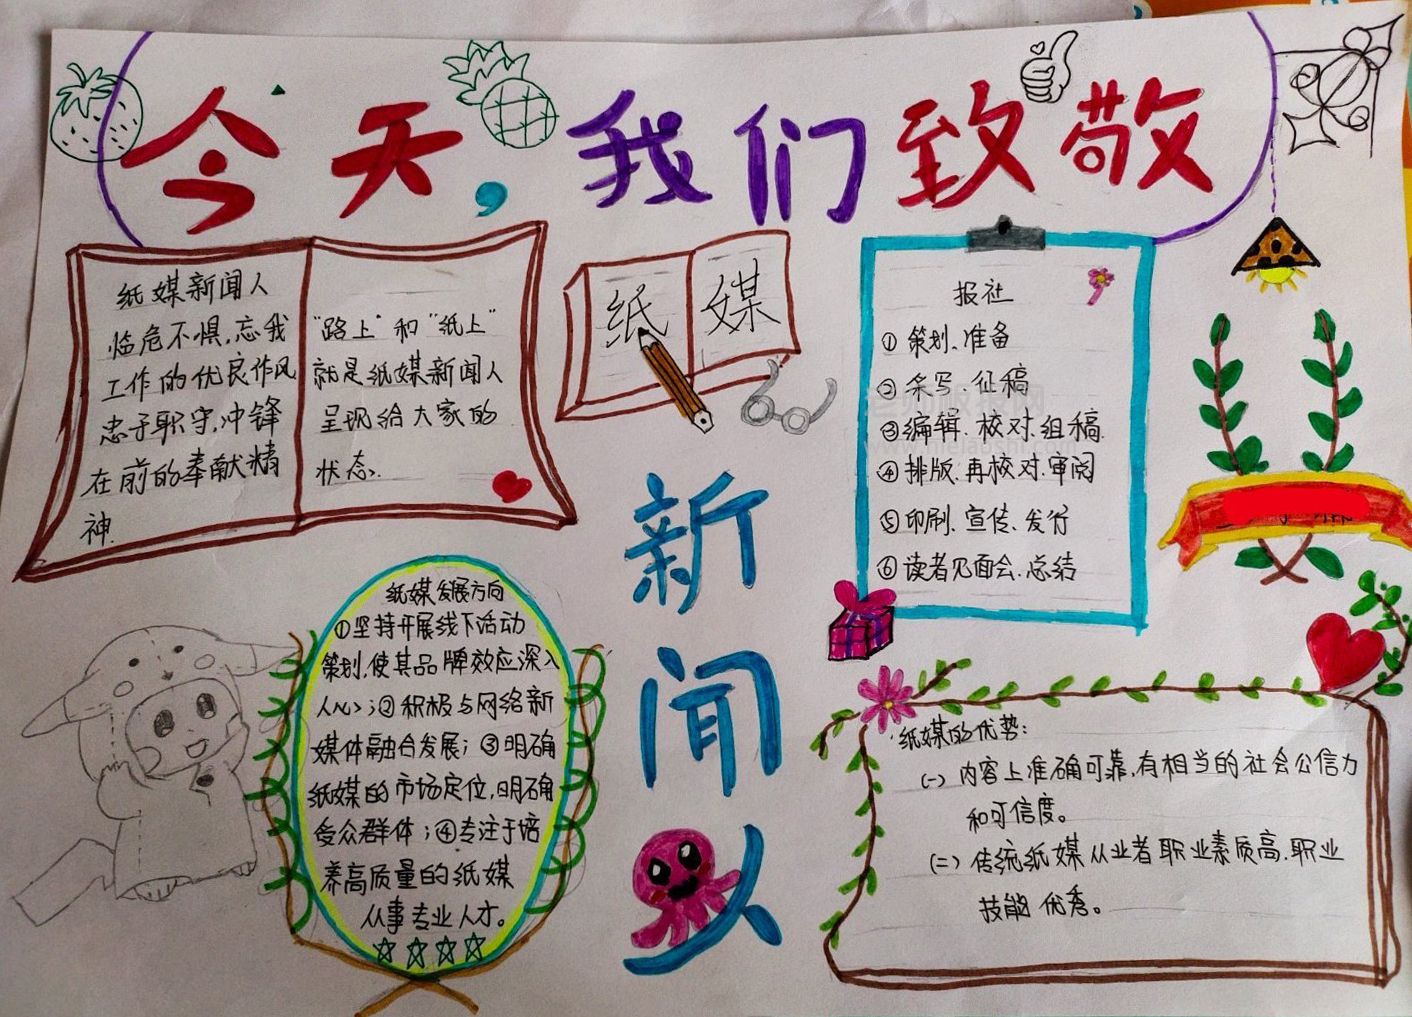 今天，我们致敬
纸媒新闻人
临危不惧、忘我
工作的优良作风
忠于职守、冲锋
在前的奉献精
神.
"路上"和"纸上"
就是纸媒新闻人
呈现给大家的
状态.
纸媒
新闻人
报社
①策划、准备
②采写、征稿
③编辑、校对、组稿.
④排版、再校对、审阅
⑤印刷、宣传、发行
⑥读者见面会、总结
纸媒发展方向
①坚持开展线下活动
策划,使其品牌效应深入
人心;②积极与网络新
媒体融合发展;③明确
纸媒的市场定位,明确
受众群体;④专注于培
养高质量的纸媒
从事专业人才。
纸媒的优势:
(一)内容上准确可靠,有相当的社会公信力
和可信度。
(二)传统纸媒从业者职业素质高、职业
技能优秀。